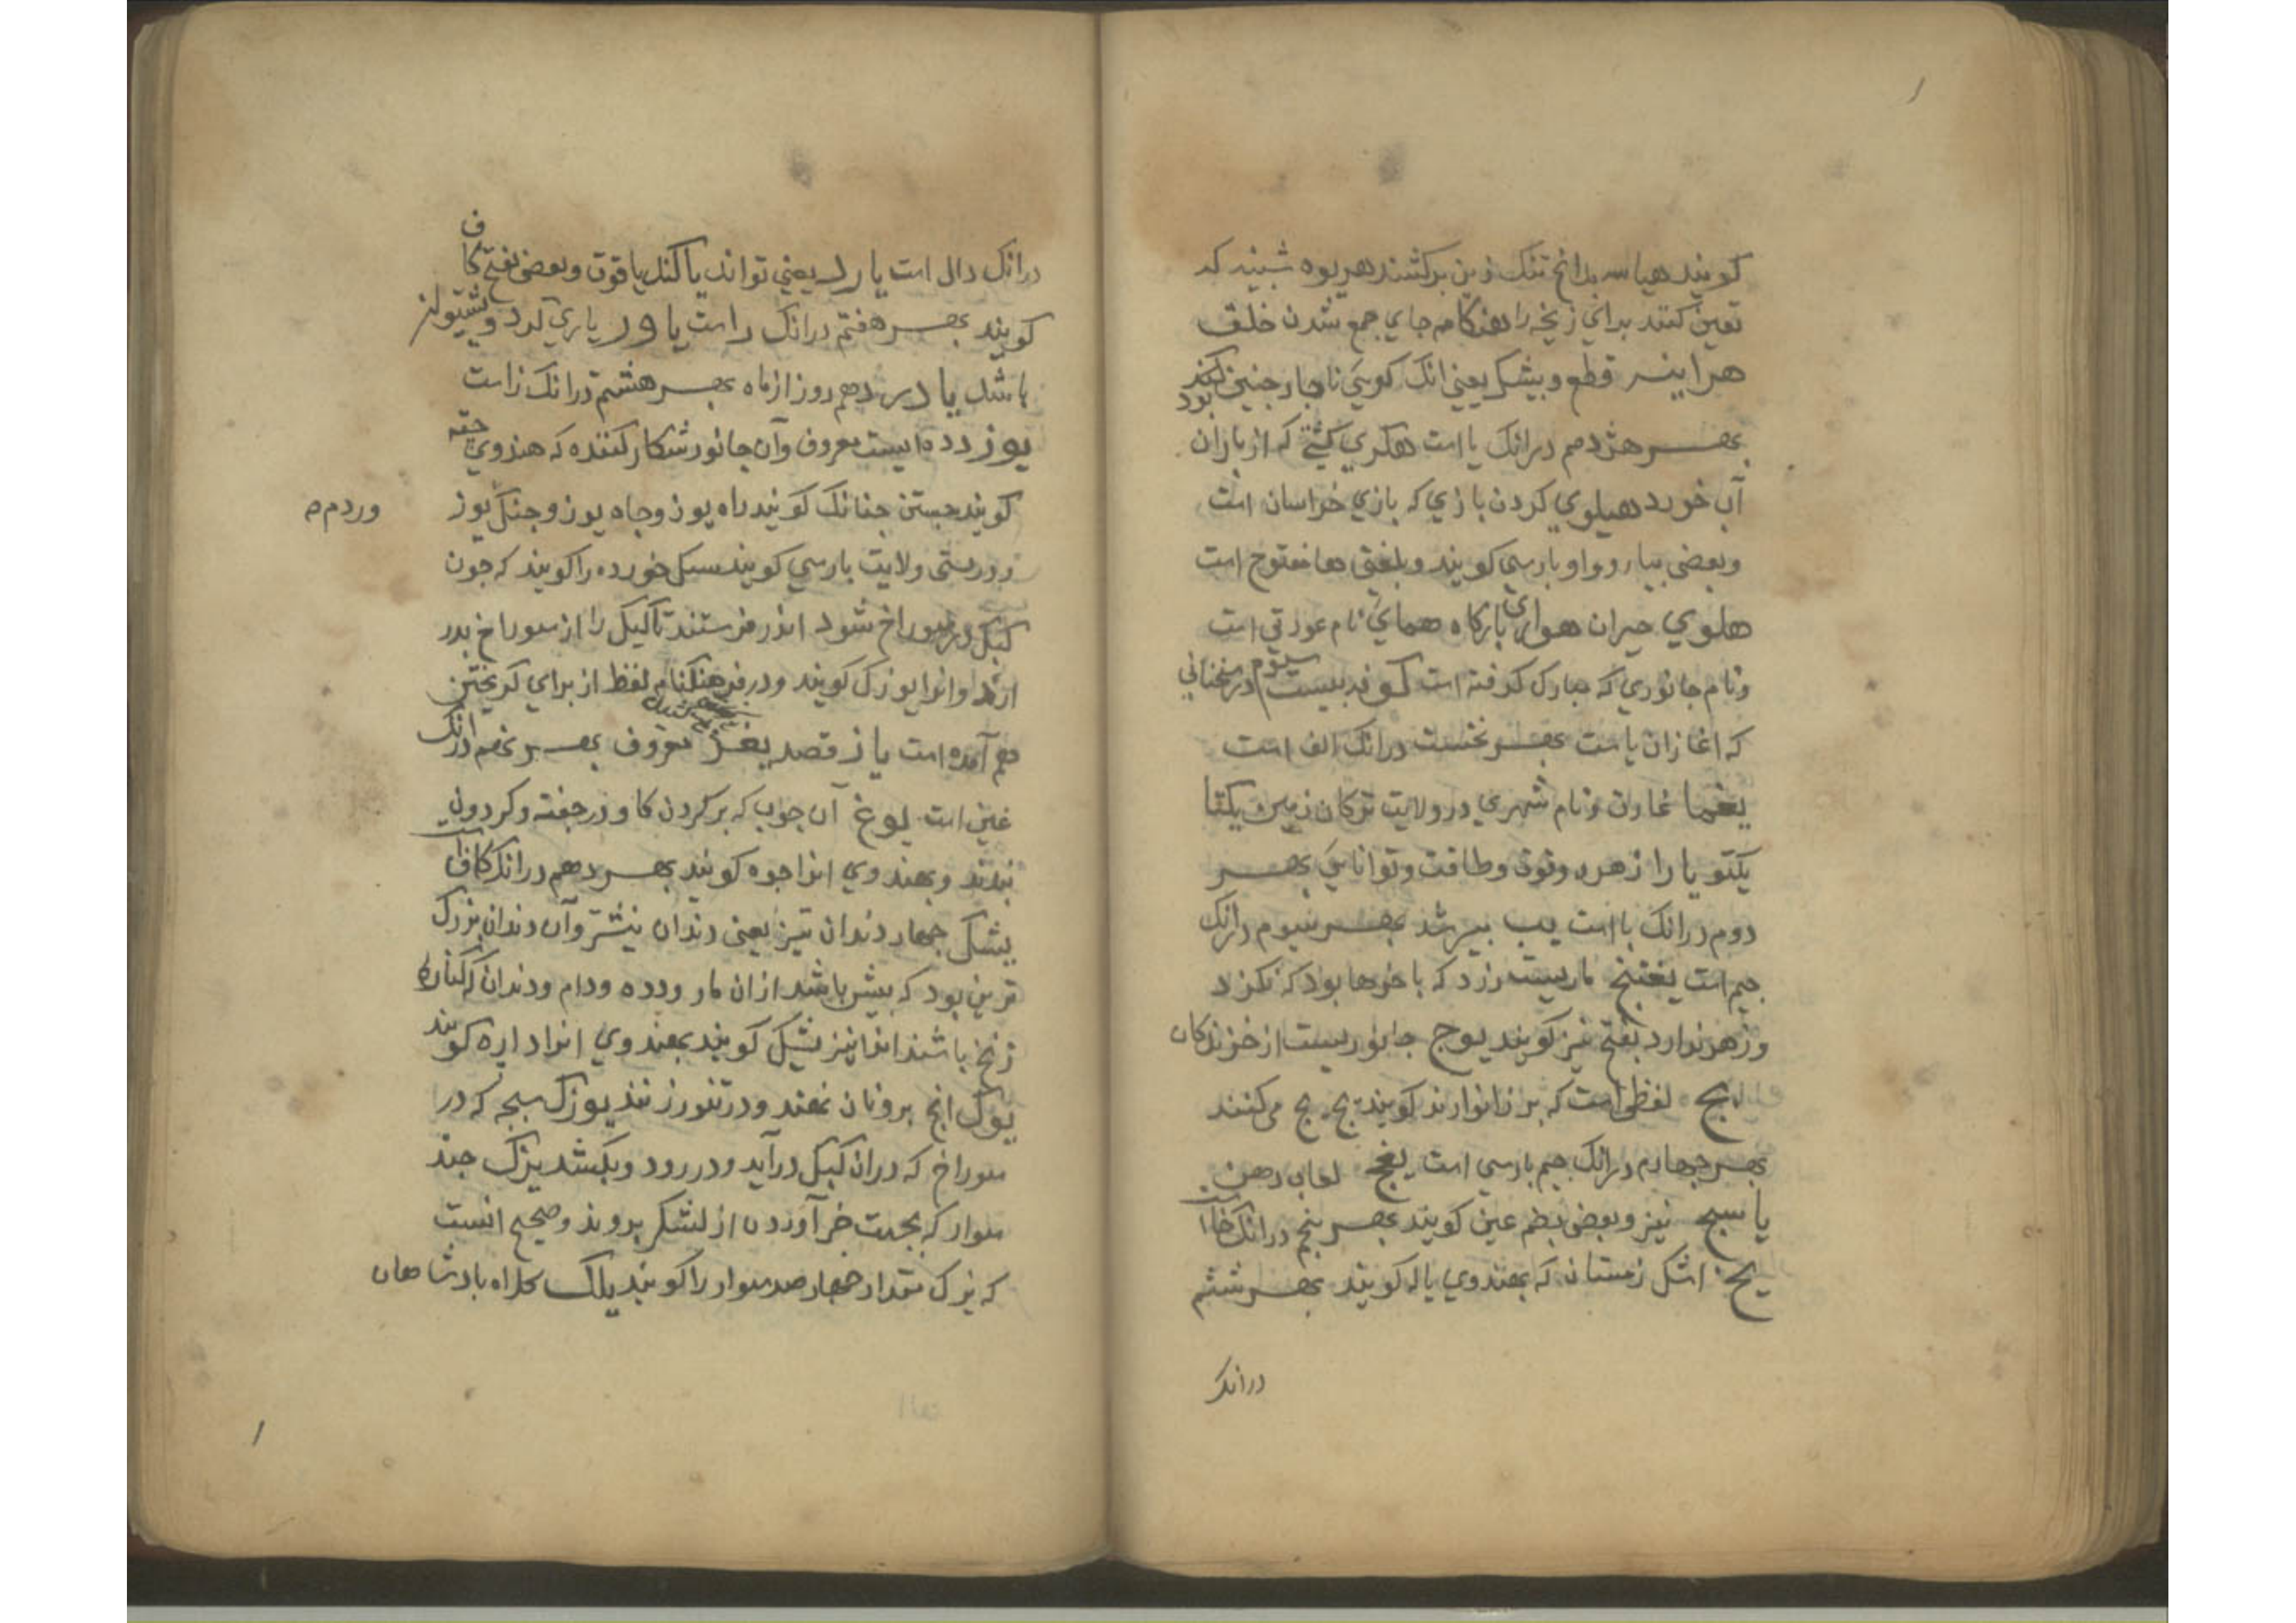 کویند هیاسه بدانج تنک زین برکشند هریوه شبینه که
تعین کنند برای زنخه را هنکام جای جمع شدن خلق
هراینه قطع و بیشک یعنی انک کویی ناجار جنین کند بود
بهر هژدهم درانک یا است هکری کشتی که از باران
آب خورد هیلوی کردن بازی که بازی خراسان است
وبعضی بیا و واو بارسی کویند وبلغتی ها مفتوح است
هلوی حیران هوای بارکاه همای نام عورتی است
ونام جانوری که مبارک کرفته است کونه بیست سیوم در سخنانی
که اغاز ان یا ست بهر نخست درانک الف است
یغما غارت ونام شهری در ولایت ترکان زمین یکتا
یکتو یارا زهره وقوت وطاقت وتوانایی بهر
دوم درانک با است یب بهر سیوم درانک
جیم است یغتنج ماریست زرد که با خرها بود که نکزد
وزهر ندارد بفتح نیز کویند یوج جانوریست از خزندکان
لفظی است که بر زانوارند کویند یج یج می کنند
بهر جهارم درانک جیم بارسی است یفج لعاب دهن
یاسج نیز وبعضی بضم عین کویند بهر بنجم درانک خا است
یخ اشک زمستان که بهندوی پاله کویند بهر ششم
درانک
درانک دال است یارد یعنی تواند یا کند یا قوت وبعضی بفتح کاف
کویند بهر هفتم درانک را ست یاور یاری کرد وپشتیوان
باشد یادر دهم روز از ماه بهر هشتم درانک زا ست
یوز دده ایست معروف وآن جانور شکار کننده که هندوی جیته
کویند جستن جنانک کویند راه یوز وجاه یوز وجنک یوز
وردم م
ودر ستی ولایت بارسی کویند سک خورده را کویند که جون
کبک در سوراخ شود اندر فرستند تا کبک را از سوراخ بدر
ارد وانرا یوزک کویند ودر فرهنکنام لفظ از برای کریختن
هم آمده است یاز قصد یغز معروف بهر نهم درانک
غین است یوغ آن جوب که بر کردن کاو در جفته وکردون
بندند وبهندوی انرا جوه کویند بهر دهم درانک کاف است
یشک جهار دندان تیز یعنی دندان نیشتر وآن دندان بزرک
ترین بود که بیش باشد از ان مار ودده ودام ودندان که کناره
زنخ باشند انها نیز یشک کویند بهندوی انرا داره کویند
یوک انج برو نان نهند ودر تنور زنند یوزک سجه که در
سوراخ که دران کبک درآید ودر رود وبکشد یزک جند
سوار که بجهت خبر آوردن از لشکر بروند وصحیح انست
که یزک مقدار جهار صد سوار را کویند یلک کلاه بادشاهان